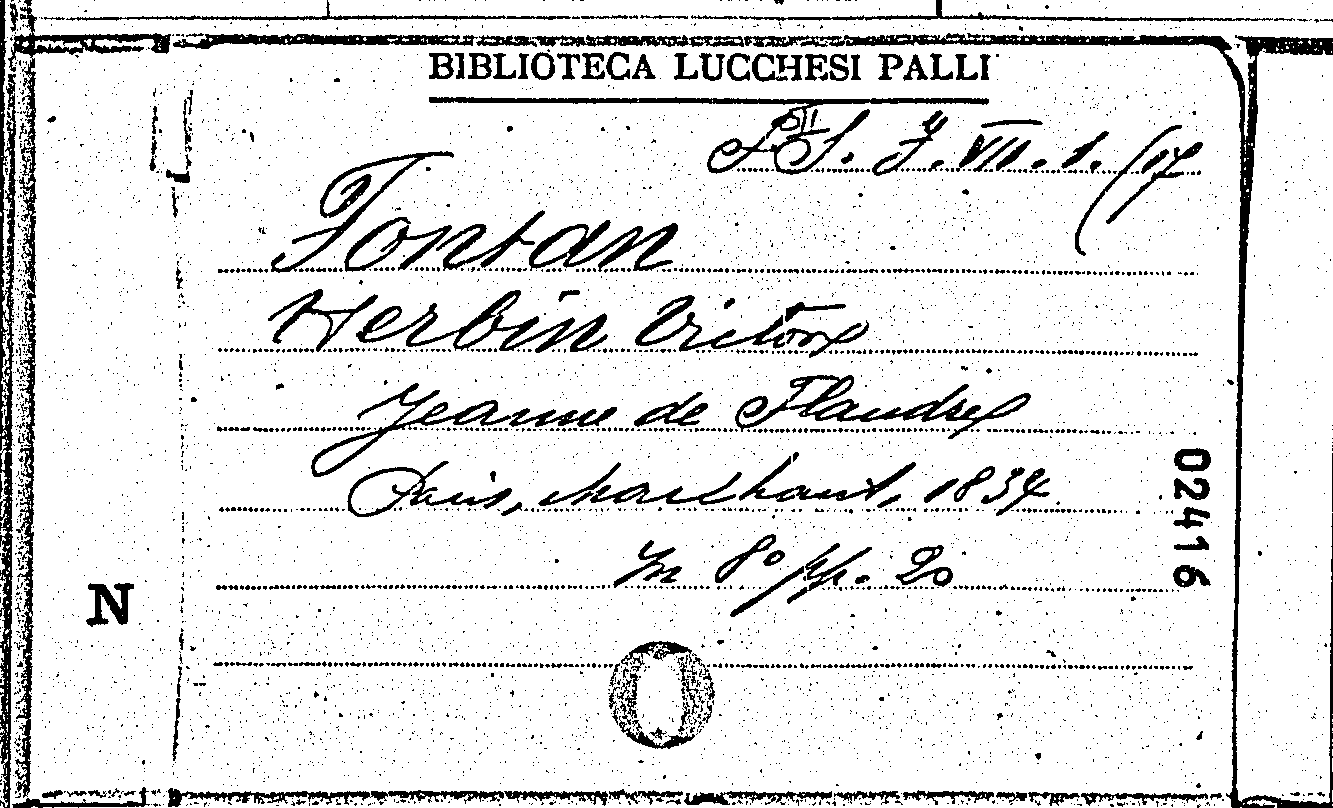 BIBLIOTECA LUCCHESI PALLI
VII. 1. (17
Fontan
Herbin Victor
Jeanne de Flandre
Paris, Marchant, 1834
In 8° pp. 20
02416
N